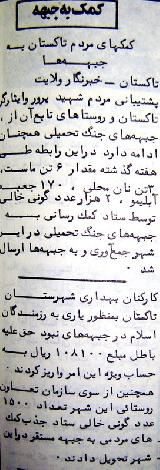 کمک به جبهه
کمکهای مردم تاکستان به
جبهه‌ها
تاکستان - خبرنگار ولایت
پشتیبانی مردم شهید پرور و ایثارگر
تاکستان و روستاهای تابع آن از
جبهه‌های جنگ تحمیلی همچنان
ادامه دارد در این رابطه طی
هفته گذشته مقدار ۶ تن ماست،
۳ تن نان محلی، ۱۷۰ جعبه
آبلیمو، ۲ هزار عدد گونی خالی
توسط ستاد کمک رسانی به
جبهه‌های جنگ تحمیلی در این
شهر جمع‌آوری و به جبهه‌ها ارسال
شد.
کارکنان بهداری شهرستان
تاکستان بمنظور یاری به رزمندگان
اسلام در جبهه‌های نبود حق علیه
باطل مبلغ ۱۰۸۱۰۰ ریال به
حساب ویژه این امر واریز کردند.
همچنین از سوی سازمان تعاون
روستائی این شهر تعداد ۱۵۰۰
عدد گونی خالی ستاد جذب کمک
های مردمی به جبهه مستقر در این
شهر تحویل دادند.